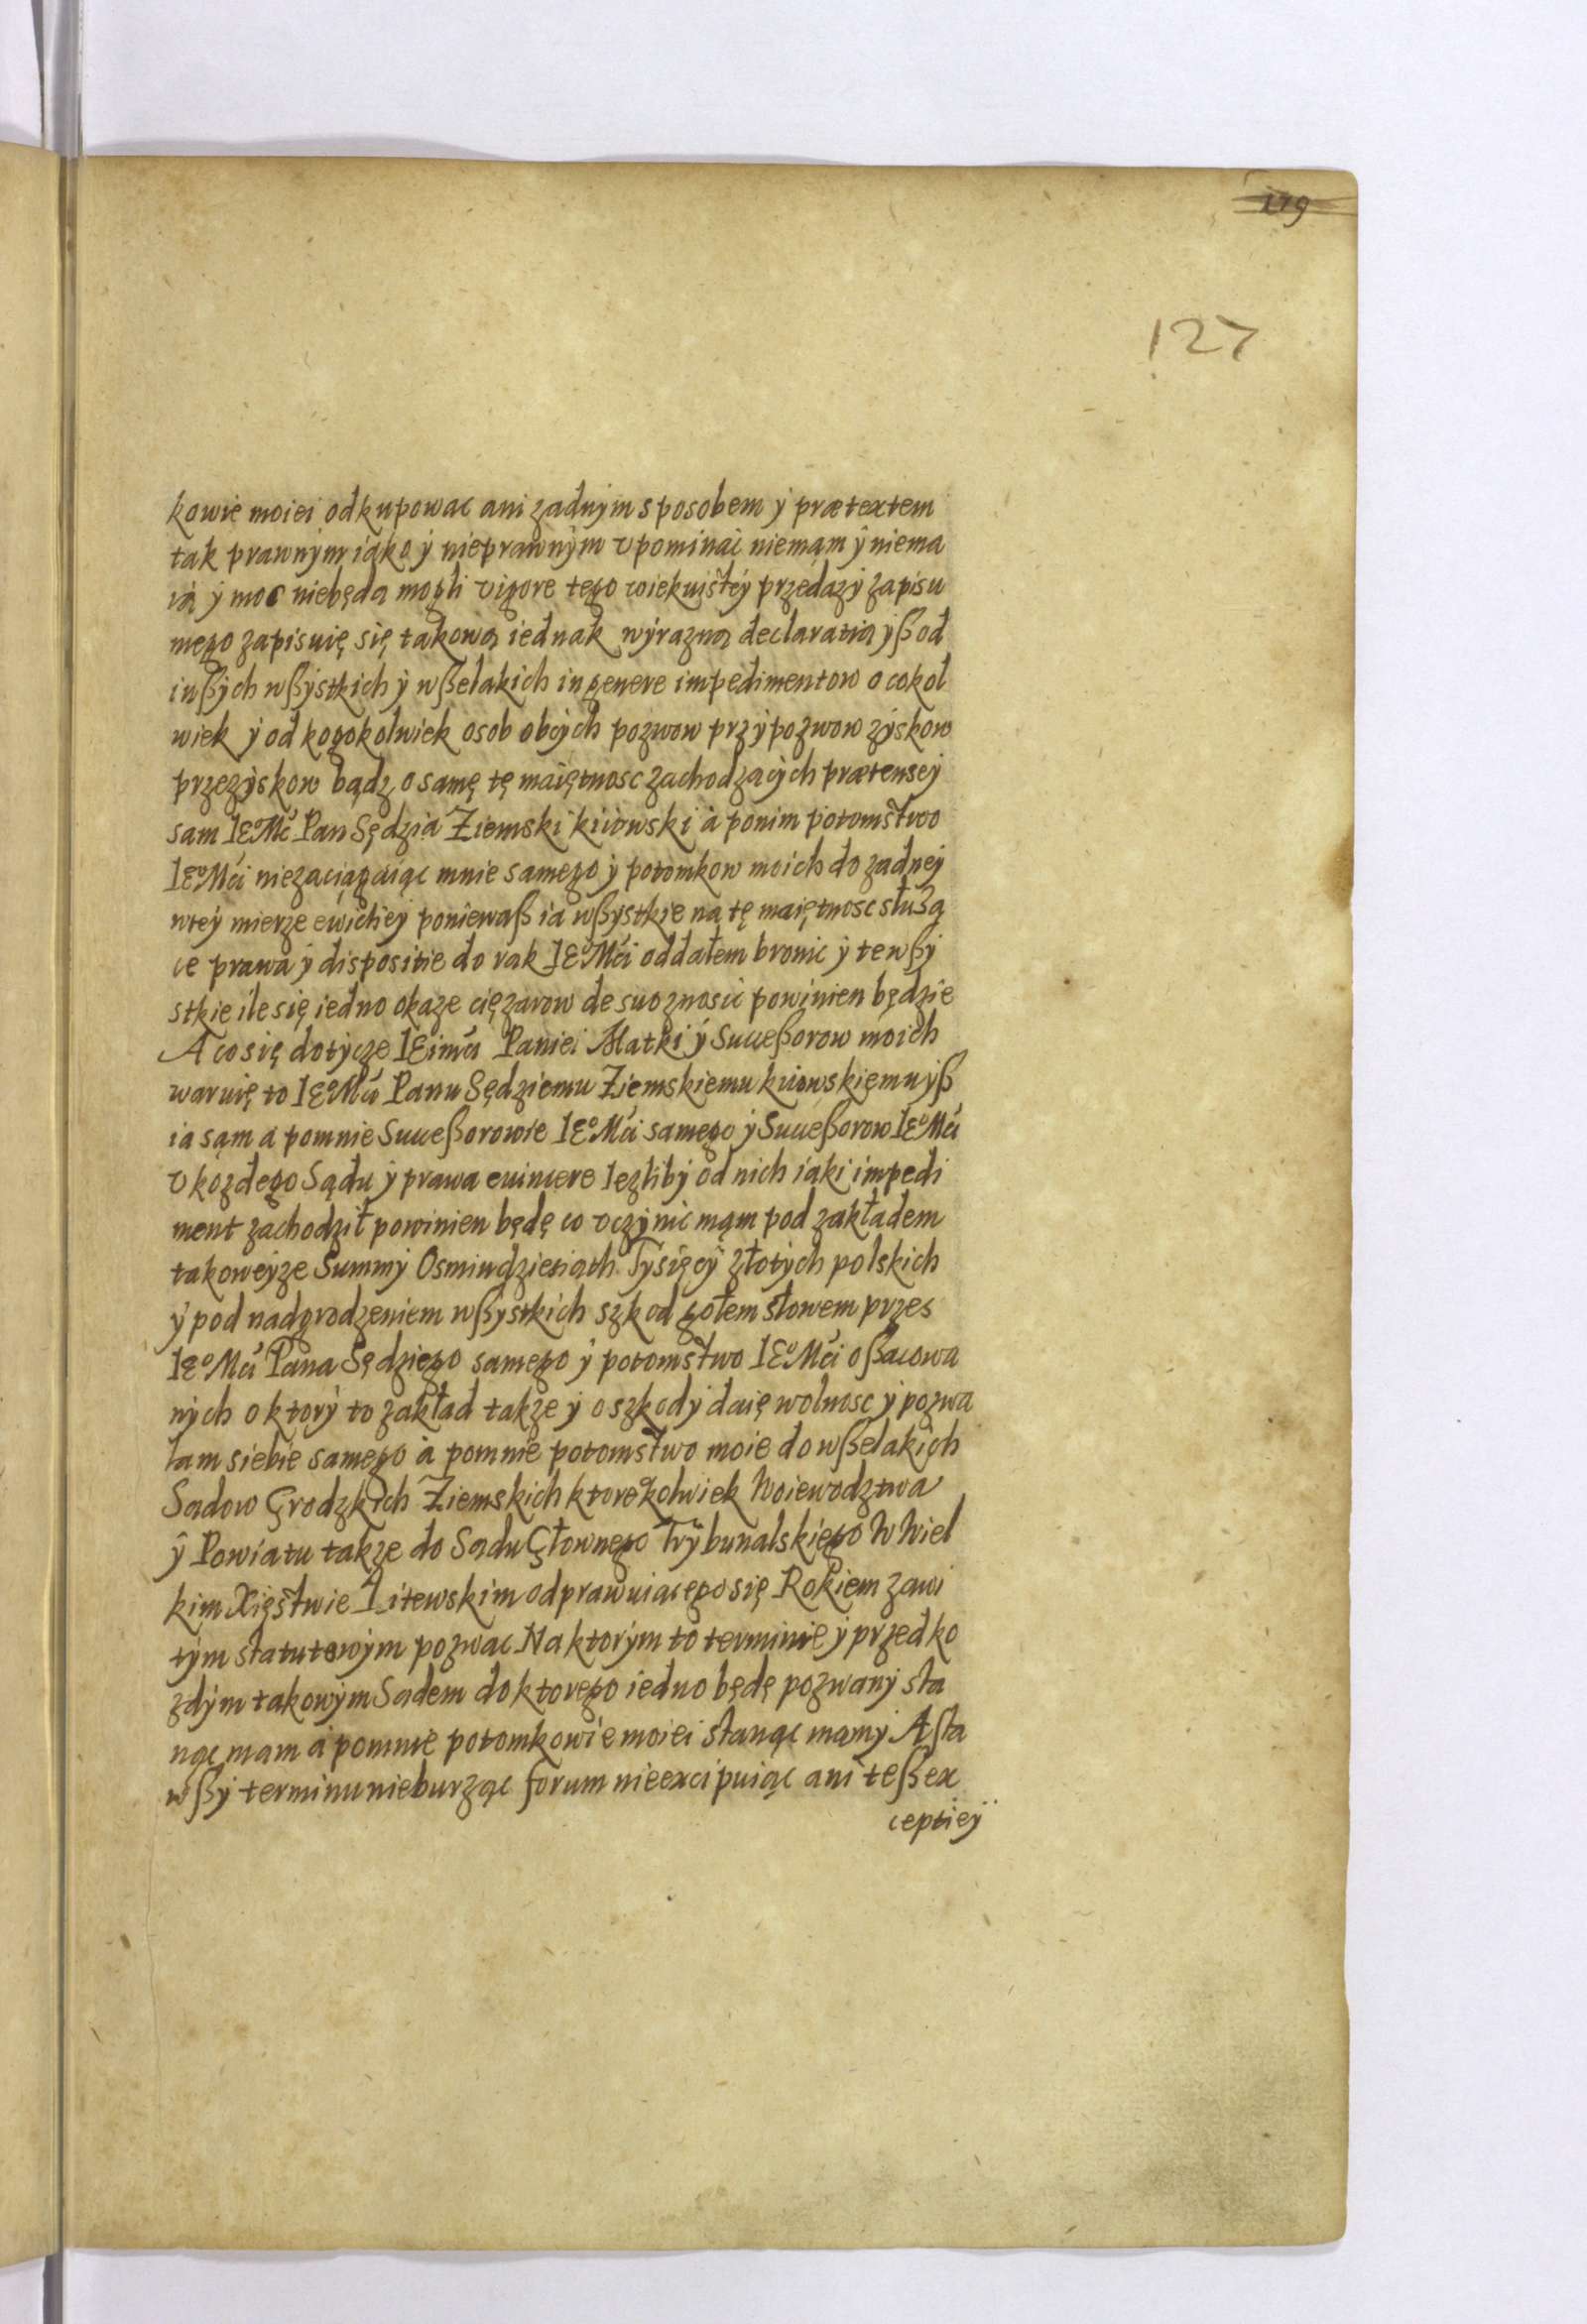 179
127
kowie moiei odkupowac ani zadnÿm sposobem ÿ prætextem
tak prawnÿm iako ÿ nieprawnÿm vpominac niemąm ÿ niema
ią ÿ moc niebęda mogli vigore tego wiekuistéÿ przedazÿ zapisu
mego zapisuię się takowa iednak wÿrazna declaratią ÿß od
inßÿch wßÿstkich ÿ wßelakich in genere impedimentow o cokol
wiek ÿ od kogokolwiek osob obcÿch pozwow przÿpozwow zÿskow
przezÿskow bądz o samę tę maiętnosc zachodzącÿch prætenseÿ
sam IE°Mć Pan Sędzia Ziemski kiiowski à ponim potomstwo
IE°Mći niezaciągaiąc mnie samego ÿ potomkow moich do zadneÿ
wteÿ mierze ewictieÿ poniewaß ia wßÿstkie na tę maiętnosc słuzą
ce prawa ÿ dispositie do rak IE°Mći oddałem bronic ÿ te wßÿ
stkie ile się iedno okaze cięzarow de suo znosic powinien będzie
A co się dotÿcze IEimći Paniei Matki ÿ Successorow moich
waruię to IE°Mći Panu Sędziemu Ziemskiemu kiiowskiemu ÿß
ia sąm a pomnie Succeßorowie IE°Mći samego ÿ Succeßorow IE°Mći
v kozdego Sądu ÿ prawa euincere Iezlibÿ od nich iaki impedi
ment zachodził powinien będę co vczÿnic mąm pod zakładem
takoweÿze Summÿ Osmiudziesiąth Tÿsięcÿ złotÿch polskich
ÿ pod nadgrodzeniem wßÿstkich szkod gołem słowem przes
IE°Mći Pana Sędziego samego ÿ potomstwo IE°Mći oßacowa
nÿch o ktorÿ to zakład takze ÿ o szkodÿ daię wolnosc ÿ pozwa
lam siebie samego à pomnie potomstwo moie do wßelakich
Sadow Grodzkich Ziemskich ktoregokolwiek Woiewodztwa
ÿ Powiatu takze do Sadu Głownego Trÿbunalskiego W Wiel
kim Xięstwie Litewskim odprawuiącego się Rokiem zawi
tÿm statutowÿm pozwac Na ktorÿm to terminie ÿ przed ko
zdÿm takowÿm Sadem do ktorego iedno będę pozwanÿ sta
nąc mam à pomnie potomkowie moiei stanąc mamÿ A sta
wßÿ terminu nieburząc forum nieexcipuiąc ani teß ex
ceptieÿ